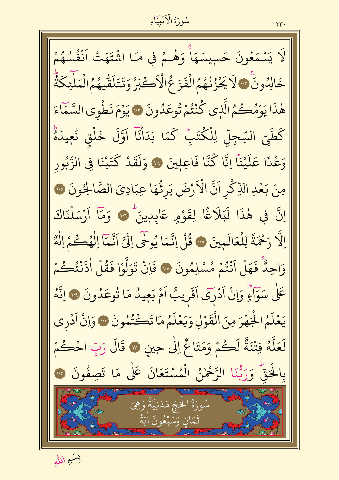 سُورَةُ الْاَنْبِيَاءِ
٣٣٠
لَا يَسْمَعُونَ حَسِيسَهَاۚ وَهُمْ فِي مَا اشْتَهَتْ اَنْفُسُهُمْ
خَالِدُونَۚ ﴿١٠٢﴾ لَا يَحْزُنُهُمُ الْفَزَعُ الْاَكْبَرُ وَتَتَلَقّٰيهُمُ الْمَلٰٓئِكَةُۜ
هٰذَا يَوْمُكُمُ الَّذِي كُنْتُمْ تُوعَدُونَ ﴿١٠٣﴾ يَوْمَ نَطْوِي السَّمَٓاءَ
كَطَيِّ السِّجِلِّ لِلْكُتُبِۜ كَمَا بَدَأْنَٓا اَوَّلَ خَلْقٍ نُعِيدُهُۜ
وَعْدًا عَلَيْنَاۜ اِنَّا كُنَّا فَاعِلِينَ ﴿١٠٤﴾ وَلَقَدْ كَتَبْنَا فِي الزَّبُورِ
مِنْ بَعْدِ الذِّكْرِ اَنَّ الْاَرْضَ يَرِثُهَا عِبَادِيَ الصَّالِحُونَ ﴿١٠٥﴾
اِنَّ فِي هٰذَا لَبَلَاغًا لِقَوْمٍ عَابِدِينَۜ ﴿١٠٦﴾ وَمَٓا اَرْسَلْنَاكَ
اِلَّا رَحْمَةً لِلْعَالَمِينَ ﴿١٠٧﴾ قُلْ اِنَّمَا يُوحٰٓى اِلَيَّ اَنَّمَٓا اِلٰهُكُمْ اِلٰهٌ
وَاحِدٌۚ فَهَلْ اَنْتُمْ مُسْلِمُونَ ﴿١٠٨﴾ فَاِنْ تَوَلَّوْا فَقُلْ اٰذَنْتُكُمْ
عَلٰى سَوَٓاءٍۜ وَاِنْ اَدْرِٓي اَقَرِيبٌ اَمْ بَعِيدٌ مَا تُوعَدُونَ ﴿١٠٩﴾ اِنَّهُ
يَعْلَمُ الْجَهْرَ مِنَ الْقَوْلِ وَيَعْلَمُ مَا تَكْتُمُونَ ﴿١١٠﴾ وَاِنْ اَدْرِي
لَعَلَّهُ فِتْنَةٌ لَكُمْ وَمَتَاعٌ اِلٰى حِينٍ ﴿١١١﴾ قَالَ رَبِّ احْكُمْ
بِالْحَقِّۜ وَرَبُّنَا الرَّحْمٰنُ الْمُسْتَعَانُ عَلٰى مَا تَصِفُونَ ﴿١١٢﴾
سُورَةُ الْحَجِّ مَدَنِيَّةٌ وَهِيَ
ثَمَانٍ وَسَبْعُونَ اٰيَةً
بِسْمِ اللّٰهِ